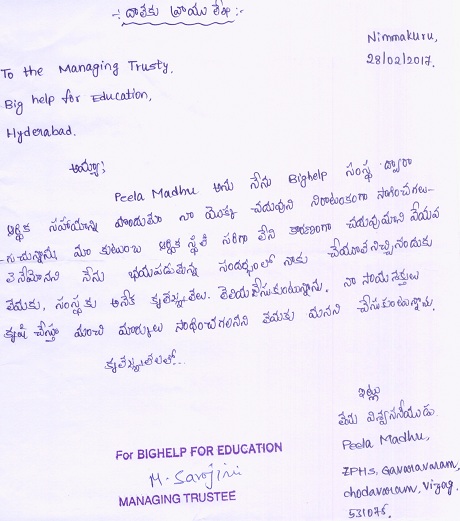 -:- దాతకు వ్రాయు లేఖ :-
Nimmakuru,
28/02/2017.
To the Managing Trusty,
Big help for Education,
Hyderabad.
అయ్యా;
Peela Madhu అను నేను Bighelp సంస్థ ద్వారా
ఆర్థిక సహాయాన్ని పొందుతూ నా యొక్క చదువుని నిరాటంకంగా సాగించగలు-
గుచున్నాను. మా కుటుంబ ఆర్థిక స్థితి సరిగా లేని కారణంగా చదువుమాని వేయవ
లెనేమోనని నేను భయపడుతున్న సందర్భంలో నాకు చేయూతనిచ్చినందుకు
తమకు, సంస్థకు అనేక కృతజ్ఞతలు. తెలియజేసుకుంటున్నాను. నా సాయశక్తులు
కృషి చేస్తూ మంచి మార్కులు సాధించగలనని తమకు మనవి చేసుకుంటున్నాను.
కృతజ్ఞతలతో...
ఇట్లు
తమ విశ్వసనీయుడు.
Peela Madhu,
ZPHS, Gavaravaram,
chodavaram, Vizag.
531075.
For BIGHELP FOR EDUCATION
M. Sarojini
MANAGING TRUSTEE